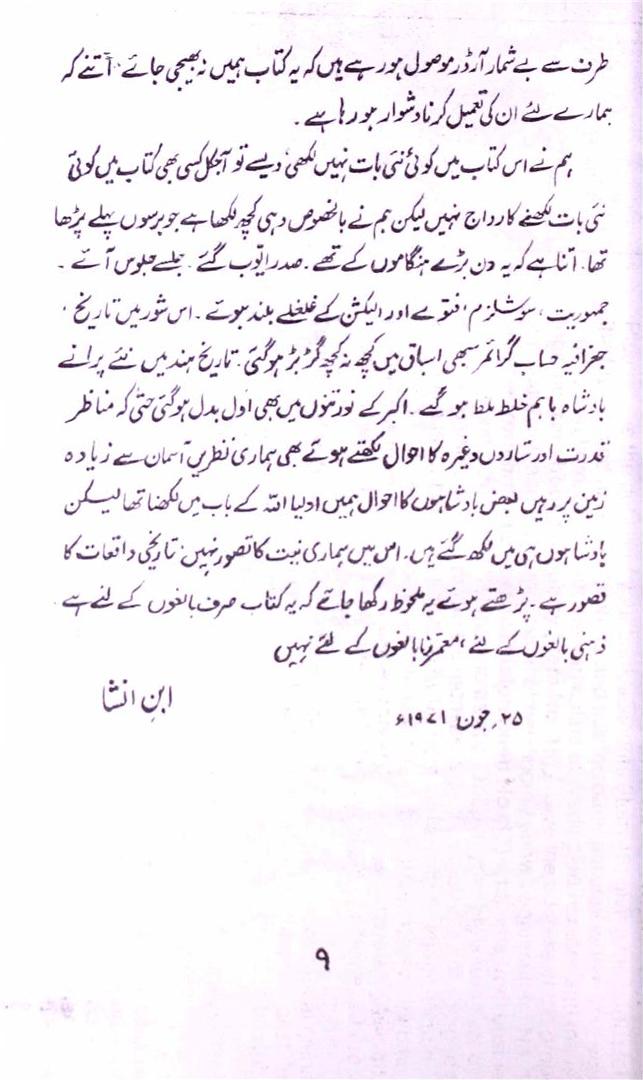 طرف سے بے شمار آرڈر موصول ہو رہے ہیں کہ یہ کتاب ہمیں نہ بھیجی جائے، اتنے کہ
ہمارے لئے ان کی تعمیل کرنا دشوار ہو رہا ہے ۔
ہم نے اس کتاب میں کوئی نئی بات نہیں لکھی، ویسے تو آجکل کسی بھی کتاب میں کوئی
نئی بات لکھنے کا رواج نہیں لیکن ہم نے بالخصوص وہی کچھ لکھا ہے جو برسوں پہلے پڑھا
تھا۔ اتنا ہے کہ یہ دن بڑے ہنگاموں کے تھے۔ صدر ایوب گئے۔ جلسے جلوس آئے ۔
جمہوریت، سوشلزم، فتوے اور الیکشن کے غلغلے بلند ہوئے۔ اس شور میں تاریخ،
جغرافیہ حساب گرائمر سبھی اسباق میں کچھ نہ کچھ گڑبڑ ہو گئی۔ تاریخ ہند میں نئے پرانے
بادشاہ باہم خلط ملط ہو گئے۔ اکبر کے نورتنوں میں بھی ادل بدل ہو گئی حتیٰ کہ مناظر
قدرت اور ستاروں وغیرہ کا احوال لکھتے ہوئے بھی ہماری نظریں آسمان سے زیادہ
زمین پر رہیں بعض بادشاہوں کا احوال ہمیں اولیا اللہ کے باب میں لکھنا تھا لیکن
بادشاہوں ہی میں لکھ گئے ہیں۔ اس میں ہماری نیت کا تصور نہیں، تاریخی واقعات کا
قصور ہے۔ پڑھتے ہوئے یہ ملحوظ رکھا جائے کہ یہ کتاب صرف بالغوں کے لئے ہے۔
ذہنی بالغوں کے لئے، معمر نابالغوں کے لئے نہیں
ابنِ انشا
۲۵؍ جون ۱۹۷۱ء
۹